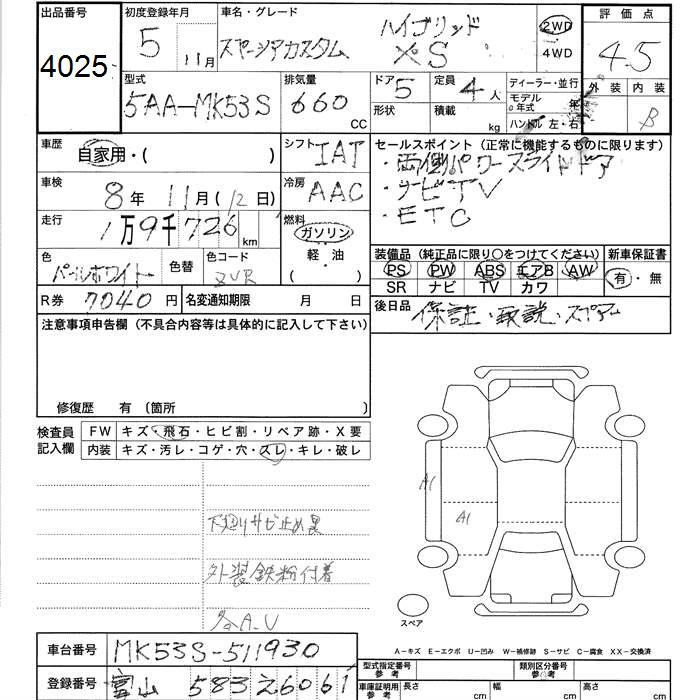 出品番号 初度登録年月 車名・グレード 評価点
4025 5 11月 スペーシアカスタム ハイブリッド XS 2WD 4WD 4.5
型式 排気量 ドア 5 定員 4人 ディーラー・並行 外装 内装
5AA-MK53S 660 CC 形状 積載 kg モデル 年式 年 B
ハンドル 左・右
車歴 シフト セールスポイント(正常に機能するものに限ります)
自家用・( ) IAT ・両側パワースライドドア
車検 8年 11月(12日) 冷房 AAC ・ナビTV
・ETC
走行 1万9千726km 燃料 ガソリン
軽油
( )
色 色替 色コード 装備品(純正品に限り○をつけてください) 新車保証書
パールホワイト ZVR PS PW ABS エアB AW 有・無
SR ナビ TV カワ
R券 7040円 名変通知期限 月 日 後日品 保証・取説・スペアー
注意事項申告欄(不具合内容等は具体的に記入して下さい)
修復歴 有 〔箇所 〕
検査員記入欄 FW キズ・飛石・ヒビ割・リペア跡・X要
内装 キズ・汚レ・コゲ・穴・スレ・キレ・破レ
A1
A1
下廻りサビ止め黒
外装鉄粉付着
各A.U
スペア
A−キズ E−エクボ U−凹み W−補修跡 S−サビ C−腐食 XX−交換済
車台番号 MK53S-511930
型式指定番号 参考 類別区分番号 参考
登録番号 富山 583 え 6061
車庫証明用 参考 長さ cm 幅 cm 高さ cm